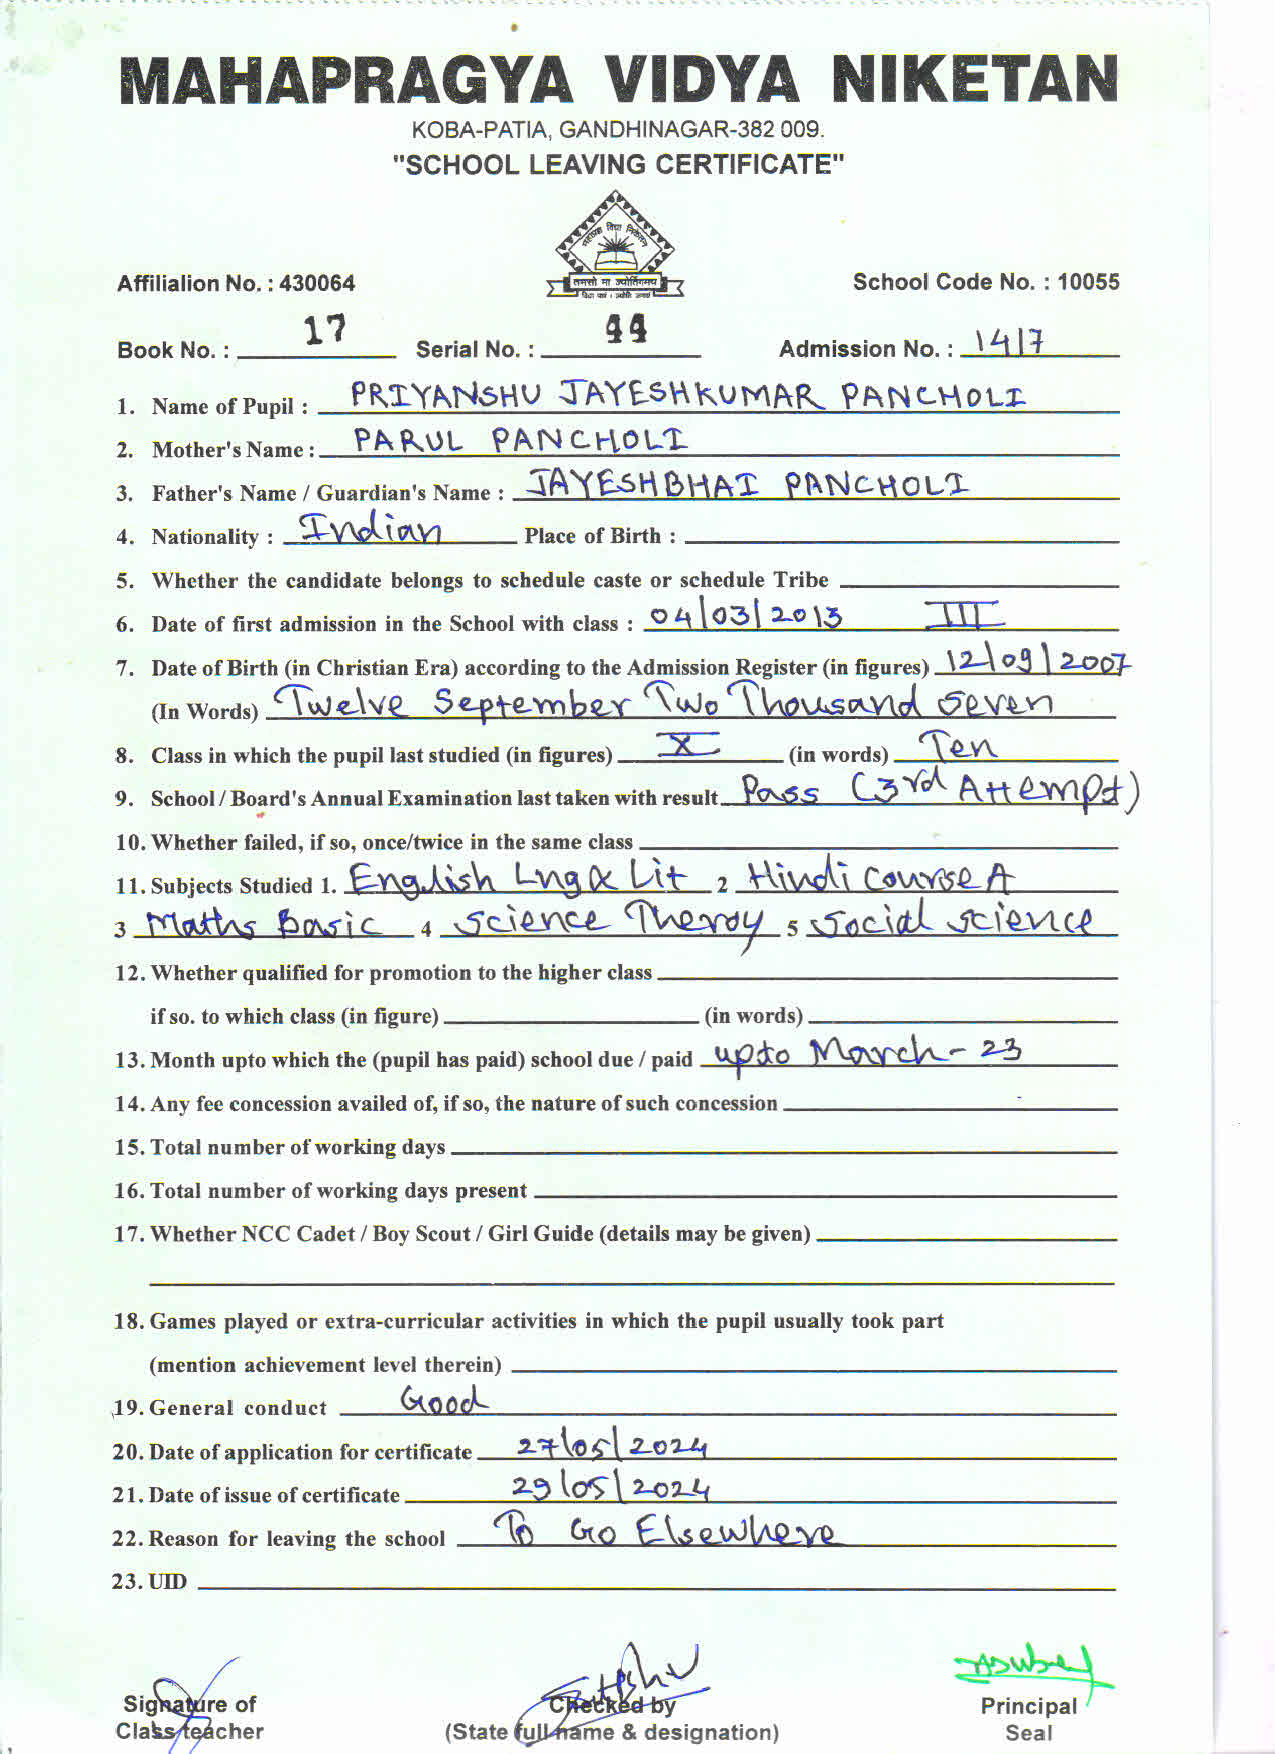 MAHAPRAGYA VIDYA NIKETAN
KOBA-PATIA, GANDHINAGAR-382 009.
"SCHOOL LEAVING CERTIFICATE"
महाप्रज्ञ विद्या निकेतन
तमसो मा ज्योतिर्गमय
Affilialion No. : 430064 School Code No. : 10055
Book No. : 17 Serial No. : 44 Admission No. : 1417
1. Name of Pupil : PRIYANSHU JAYESHKUMAR PANCHOLI
2. Mother's Name : PARUL PANCHOLI
3. Father's Name / Guardian's Name : JAYESHBHAI PANCHOLI
4. Nationality : Indian Place of Birth :
5. Whether the candidate belongs to schedule caste or schedule Tribe
6. Date of first admission in the School with class : 04/03/2013 III
7. Date of Birth (in Christian Era) according to the Admission Register (in figures) 12/09/2007
(In Words) Twelve September Two Thousand Seven
8. Class in which the pupil last studied (in figures) X (in words) Ten
9. School / Board's Annual Examination last taken with result Pass (3rd Attempt)
10. Whether failed, if so, once/twice in the same class
11. Subjects Studied 1. English Lng & Lit 2 Hindi Course A
3 Maths Basic 4 Science Theroy 5 Social Science
12. Whether qualified for promotion to the higher class
if so. to which class (in figure) (in words)
13. Month upto which the (pupil has paid) school due / paid upto March - 23
14. Any fee concession availed of, if so, the nature of such concession
15. Total number of working days
16. Total number of working days present
17. Whether NCC Cadet / Boy Scout / Girl Guide (details may be given)
18. Games played or extra-curricular activities in which the pupil usually took part
(mention achievement level therein)
19. General conduct Good
20. Date of application for certificate 27/05/2024
21. Date of issue of certificate 29/05/2024
22. Reason for leaving the school To Go Elsewhere
23. UID
Signature of Checked by Principal
Class teacher (State full name & designation) Seal